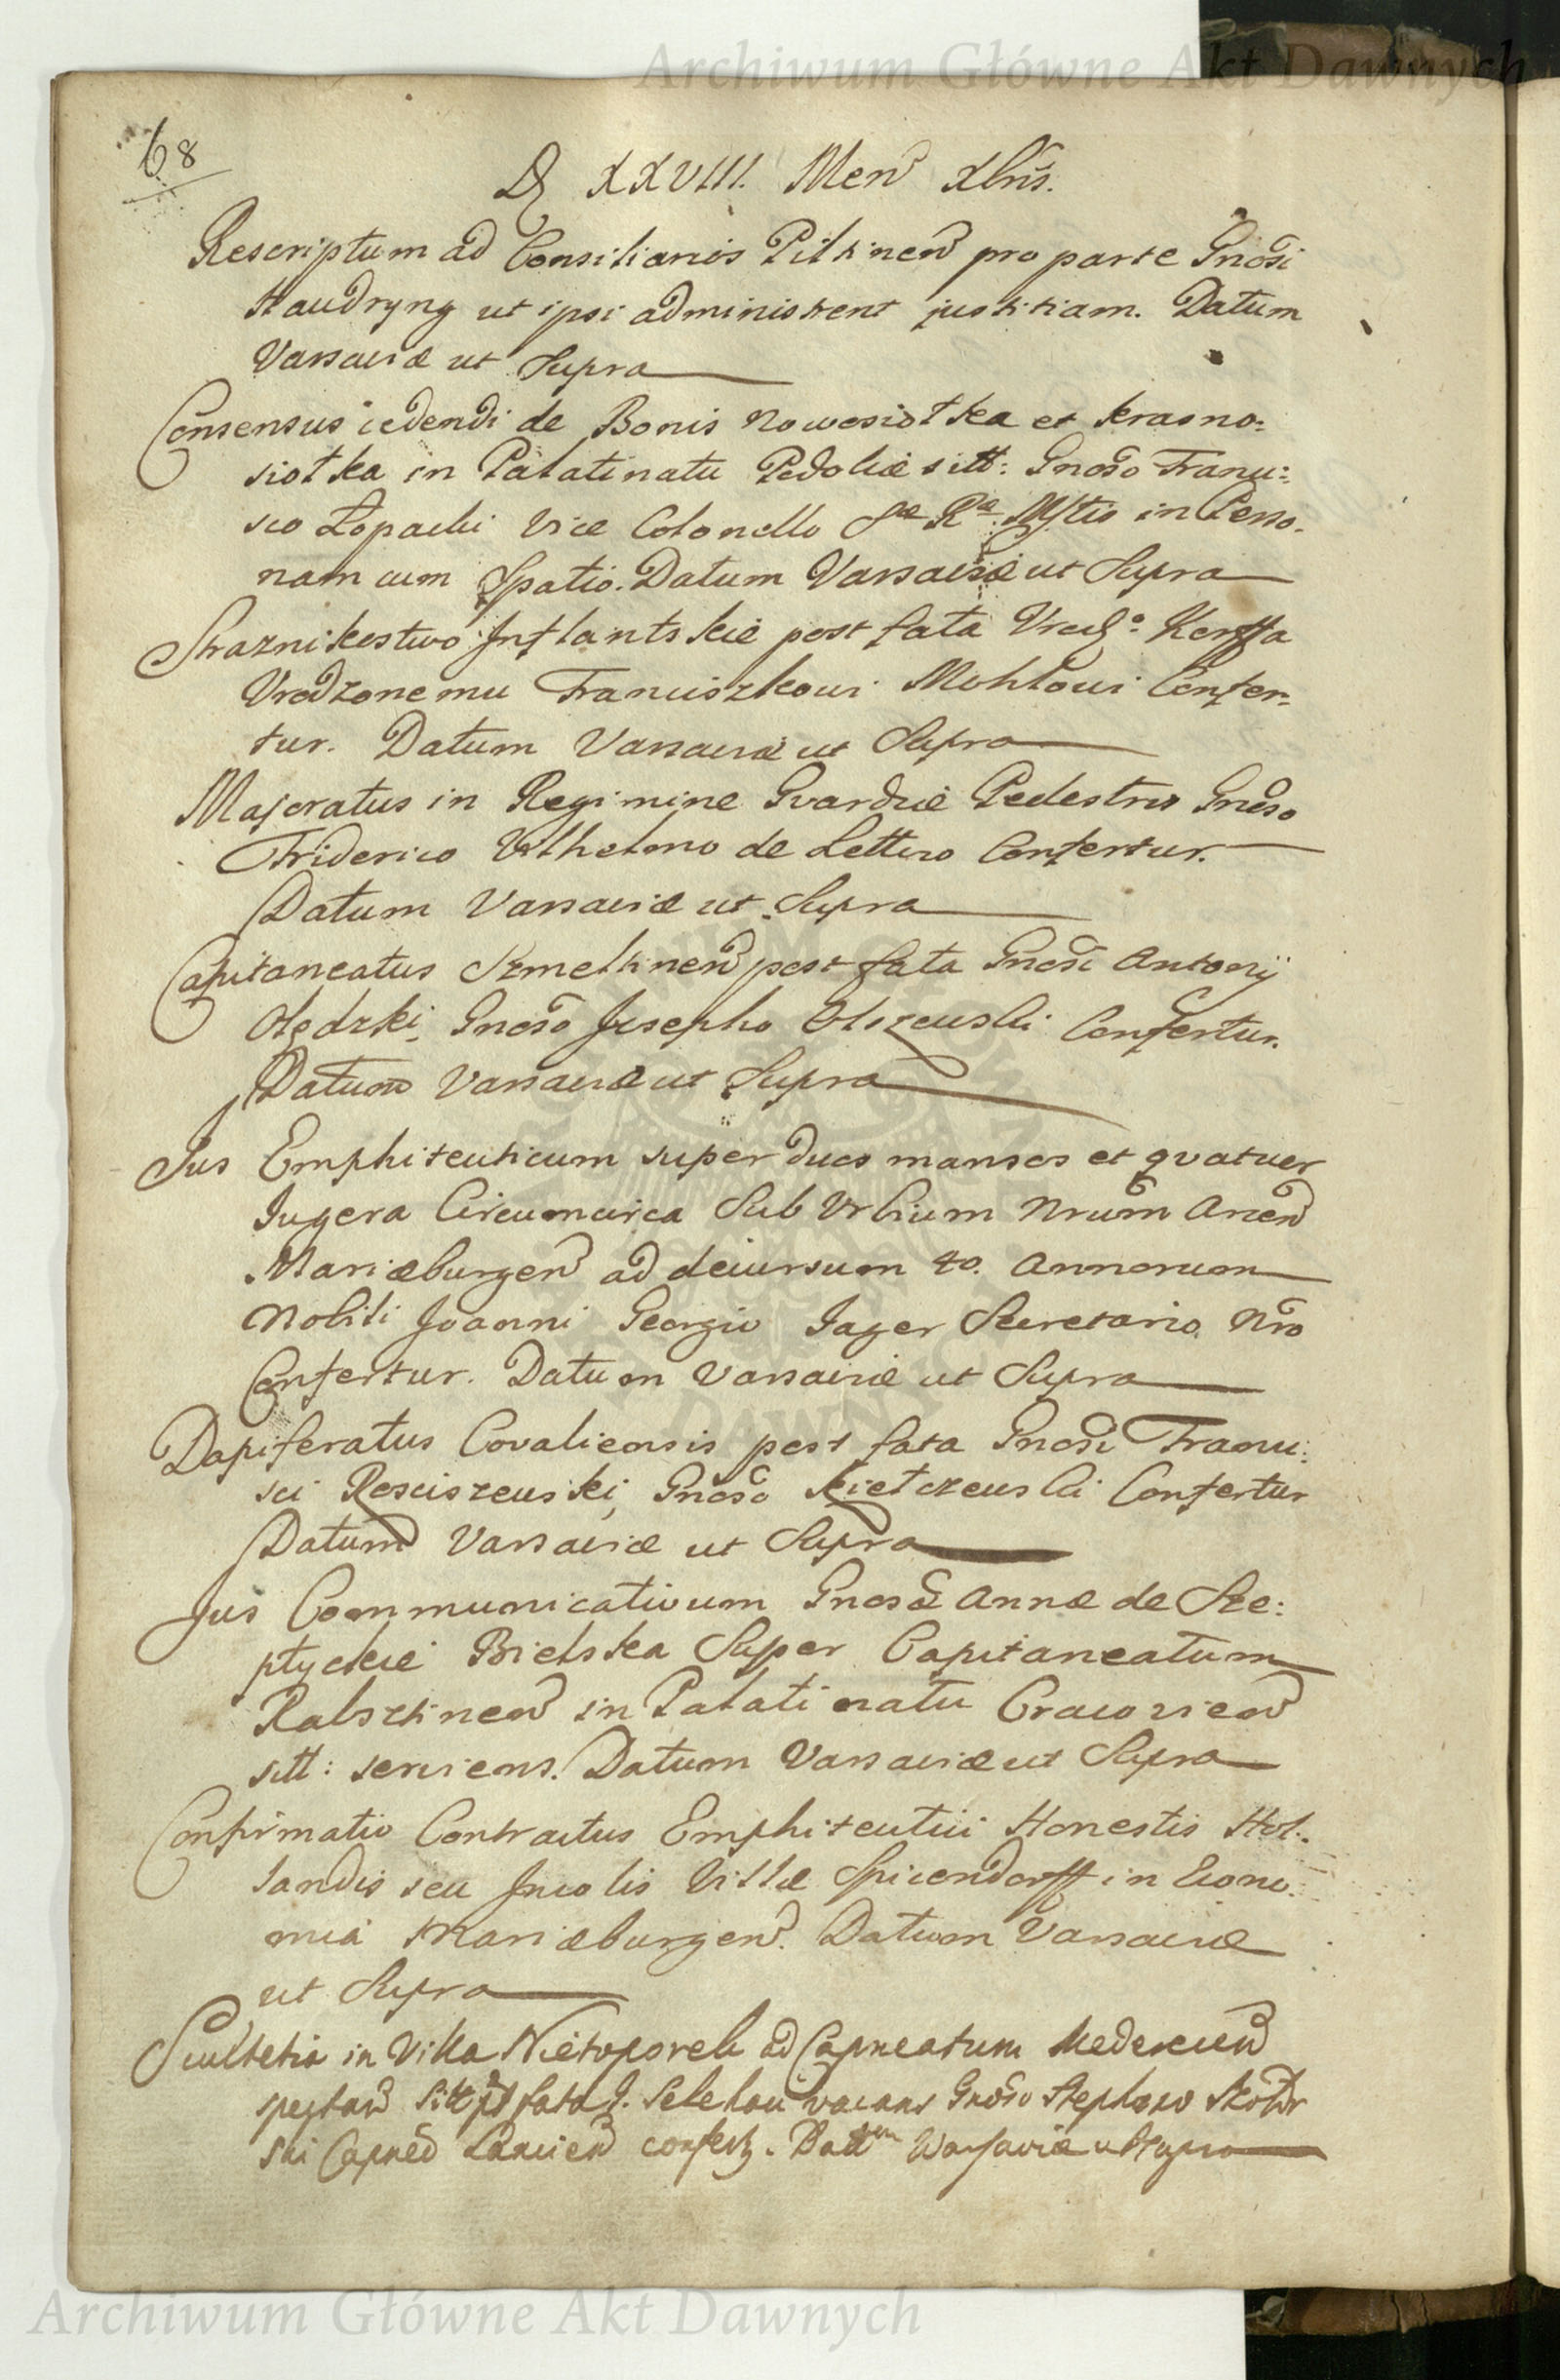 Archiwum Główne Akt Dawnych
68
D XXVIII. Men Xbris.
Rescriptum ad Consiliarios Piltinen pro parte Gnosi
Haudryng ut ipsi administrent justitiam. Datum
Varsaviæ ut Supra
Consensus cedendi de Bonis Nowosiołka et Krasno:
siołka in Palatinatu Podoliæ sitt: Gnoso Franci:
sco Łopacki Vice Colonello Sæ Ræ Mstis in Perso-
nam cum Spatio. Datum Varsaviæ ut Supra
Straznikostwo Inflantskie post fata Urodzo Korffa
Vrodzonemu Franciszkowi Mohlowi Confer-
tur. Datum Varsaviæ ut Supra
Majoratus in Regimine Gvardiæ Pedestris Gnoso
Friderico Vilhelmo de Lettow Confertur.
Datum Varsaviæ ut Supra
Capitaneatus Szmeltinen post fata Gnosi Antonij
Olędzki, Gnoso Josepho Olszewski Confertur.
Datum Varsaviæ ut Supra
Jus Emphiteuticum super duos mansos et qvatuor
Jugera Circumcirca Sub Urbium Nrum Arcen
Mariæburgen ad decursum 40. Annorum
Nobili Joanni Georgio Jager Secretario Nro
Confertur. Datum Varsaviæ ut Supra
Dapiferatus Covaliensis post fata Gnosi Franci:
sci Rosciszewski, Gnoso Kiełczewski Confertur
Datum Varsaviæ ut Supra
Jus Communicativum Gnosæ Annæ de Sze:
ptyckie Bielska Super Capitaneatum
Rabsztinen in Palatinatu Cracovien
sitt: serviens. Datum Varsaviæ ut Supra
Confirmatio Contractus Emphiteutici Honestis Hol:
landis seu Incolis Villæ Spicendorff in Econo:
mia Mariæburgen. Datum Varsaviæ
ut Supra
Scultetia in Villa Nietoporek ad Capneatum
spectan fata vacans Gnoso Stephano
ski confertr. Datum Warsaviæ ut supra
Archiwum Główne Akt Dawnych